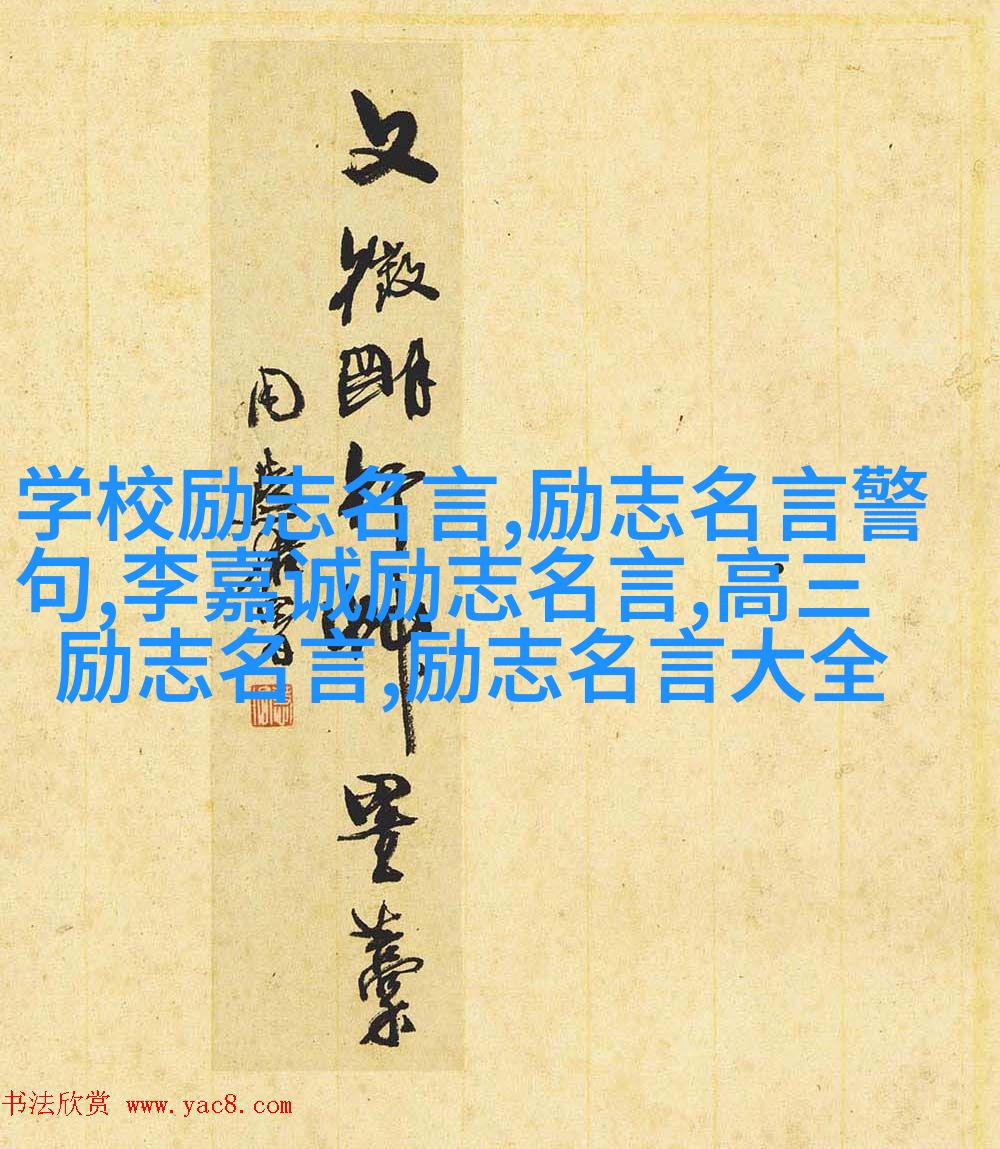 文徵明行艸墨藁
学校励志名言,励志名言警
句,李嘉诚励志名言,高三
励志名言,励志名言大全
书法欣赏 www.yac8.com